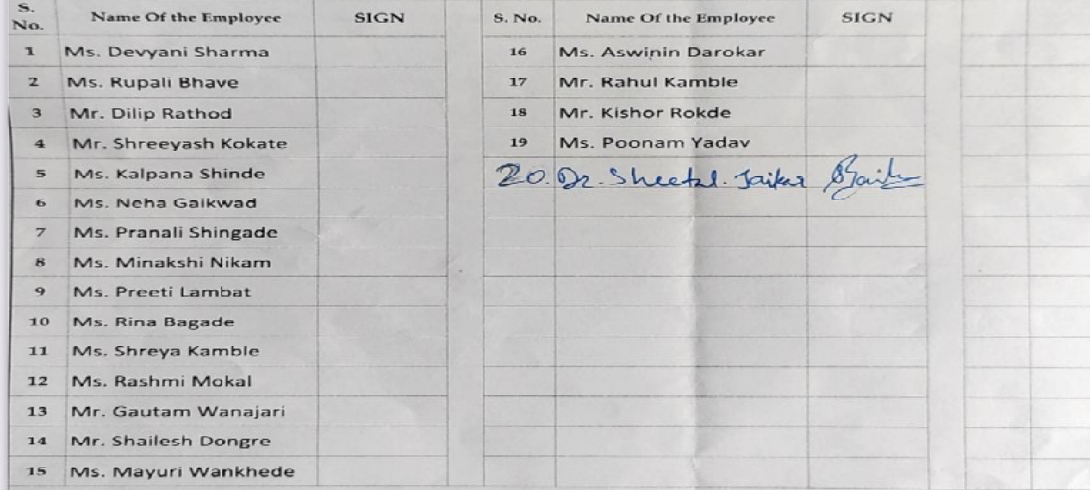 S. No. Name Of the Employee SIGN
1 Ms. Devyani Sharma
2 Ms. Rupali Bhave
3 Mr. Dilip Rathod
4 Mr. Shreeyash Kokate
5 Ms. Kalpana Shinde
6 Ms. Neha Gaikwad
7 Ms. Pranali Shingade
8 Ms. Minakshi Nikam
9 Ms. Preeti Lambat
10 Ms. Rina Bagade
11 Ms. Shreya Kamble
12 Ms. Rashmi Mokal
13 Mr. Gautam Wanajari
14 Mr. Shailesh Dongre
15 Ms. Mayuri Wankhede
S. No. Name Of the Employee SIGN
16 Ms. Aswinin Darokar
17 Mr. Rahul Kamble
18 Mr. Kishor Rokde
19 Ms. Poonam Yadav
20. Dr. Sheetal. Jaikar